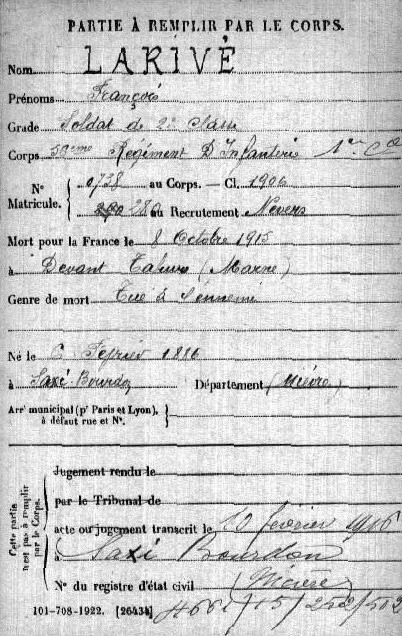 PARTIE À REMPLIR PAR LE CORPS.
Nom LARIVÉ
Prénoms François
Grade Soldat de 2e Classe
Corps Régiment D'Infanterie 1re Cie
N° Matricule. 0738 au Corps. — Cl. 1906
280 au Recrutement Nevers
Mort pour la France le 8 Octobre 1915
à Devant Tahure (Marne)
Genre de mort Tué à l'ennemi
Né le 6 Février 1886
à Saxi-Bourdon Département (Nièvre)
Arr^t municipal (p^r Paris et Lyon), à défaut rue et N°.
Cette partie n'est pas à remplir par le Corps.
Jugement rendu le
par le Tribunal de
acte ou jugement transcrit le 20 février 1916
à Saxi Bourdon
N° du registre d'état civil (Nièvre)
101-708-1922. [26434]